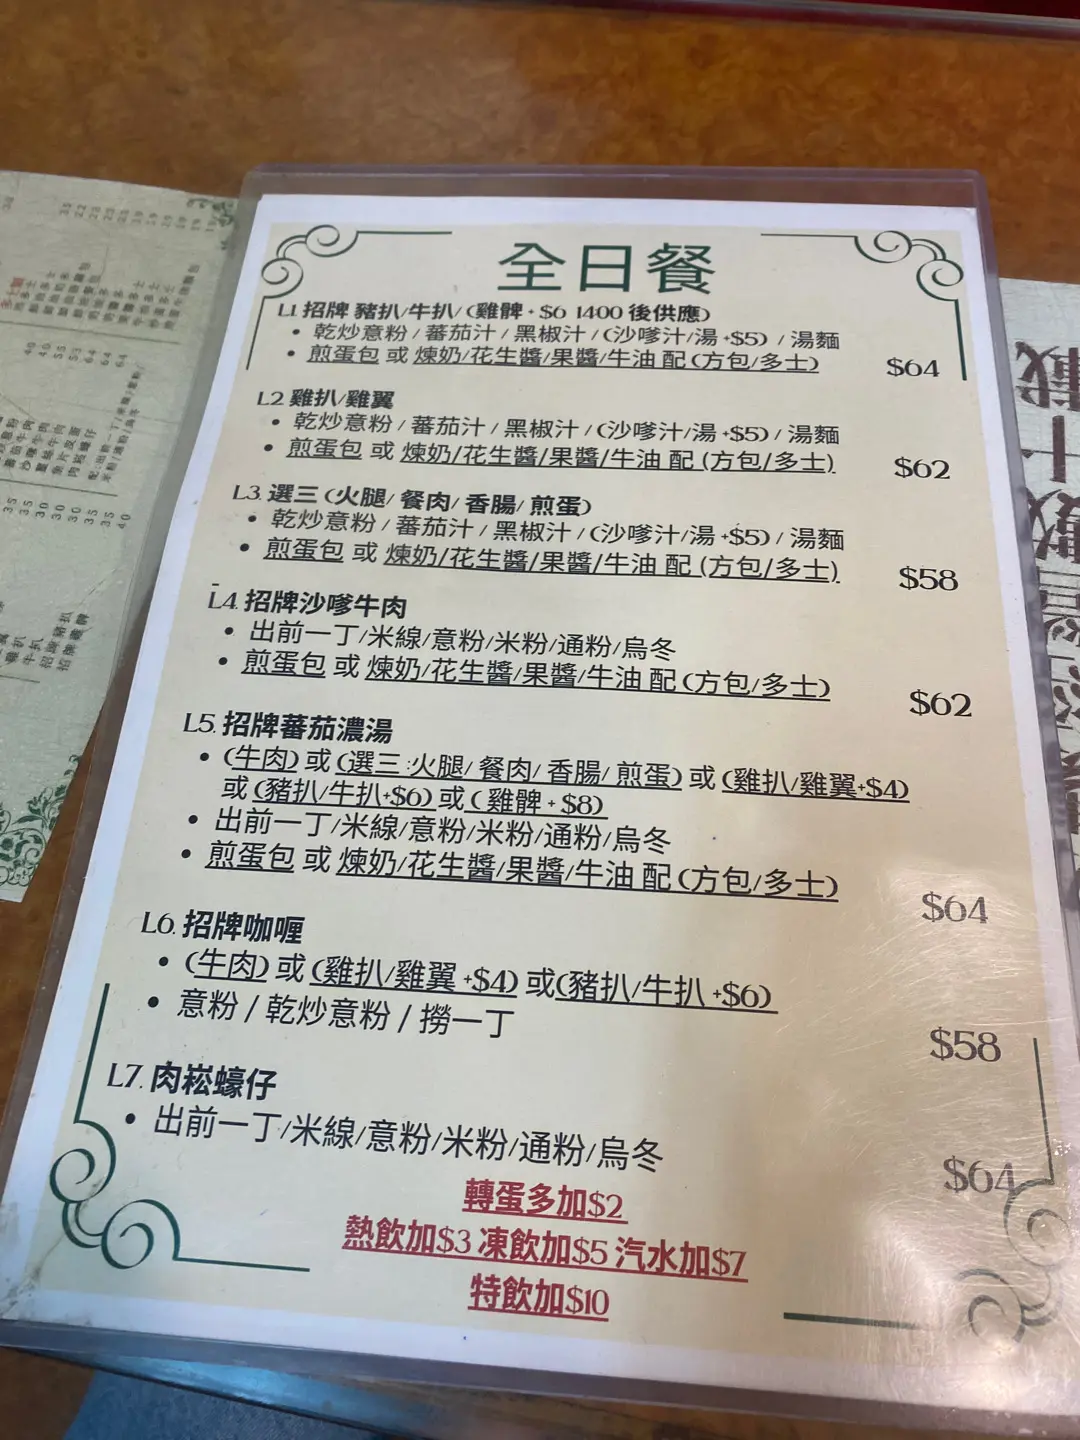 全日餐
L1 招牌 豬扒/牛扒/ (雞髀 + $6 1400 後供應)
• 乾炒意粉 / 蕃茄汁 / 黑椒汁 / (沙嗲汁/湯 +$5) / 湯麵
• 煎蛋包 或 煉奶/花生醬/果醬/牛油 配 (方包/多士)
$64
L2 雞扒/雞翼
• 乾炒意粉 / 蕃茄汁 / 黑椒汁 / (沙嗲汁/湯 +$5) / 湯麵
• 煎蛋包 或 煉奶/花生醬/果醬/牛油 配 (方包/多士)
$62
L3. 選三 (火腿/ 餐肉/ 香腸/ 煎蛋)
• 乾炒意粉 / 蕃茄汁 / 黑椒汁 / (沙嗲汁/湯 +$5) / 湯麵
• 煎蛋包 或 煉奶/花生醬/果醬/牛油 配 (方包/多士)
$58
L4. 招牌沙嗲牛肉
• 出前一丁/米線/意粉/米粉/通粉/烏冬
• 煎蛋包 或 煉奶/花生醬/果醬/牛油 配 (方包/多士)
$62
L5. 招牌蕃茄濃湯
• (牛肉) 或 (選三 :火腿/ 餐肉/ 香腸/ 煎蛋) 或 (雞扒/雞翼+$4)
或 (豬扒/牛扒+$6) 或 ( 雞髀 + $8)
• 出前一丁/米線/意粉/米粉/通粉/烏冬
• 煎蛋包 或 煉奶/花生醬/果醬/牛油 配 (方包/多士)
$64
L6. 招牌咖喱
• (牛肉) 或 (雞扒/雞翼 +$4) 或(豬扒/牛扒 +$6)
• 意粉 / 乾炒意粉 / 撈一丁
$58
L7. 肉崧蠔仔
• 出前一丁/米線/意粉/米粉/通粉/烏冬
$64
轉蛋多加$2
熱飲加$3 凍飲加$5 汽水加$7
特飲加$10